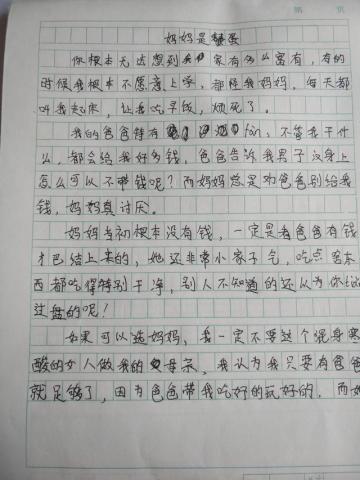 第 页
妈妈是笨蛋
你根本无法想到我家有多么富有，有的
时候我根本不愿意上学，都怪我妈妈，每天都
叫我起床，让我吃早饭，烦死了。
我的爸爸特有fón，不管我干什
么，都会给我好多钱，爸爸告诉我男子汉身上
怎么可以不带钱呢？而妈妈总是劝爸爸别给我
钱，妈妈真讨厌。
妈妈当初根本没有钱，一定是看爸爸有钱
才巴结上来的，她还非常小家子气，吃点东
西都吃得特别干净，别人不知道的还以为你
过盘的呢！
如果可以选妈妈，我一定不要这个混身寒
酸的女人做我的母亲，我认为我只要有爸爸
就足够了，因为爸爸带我吃好的玩好的，而妈